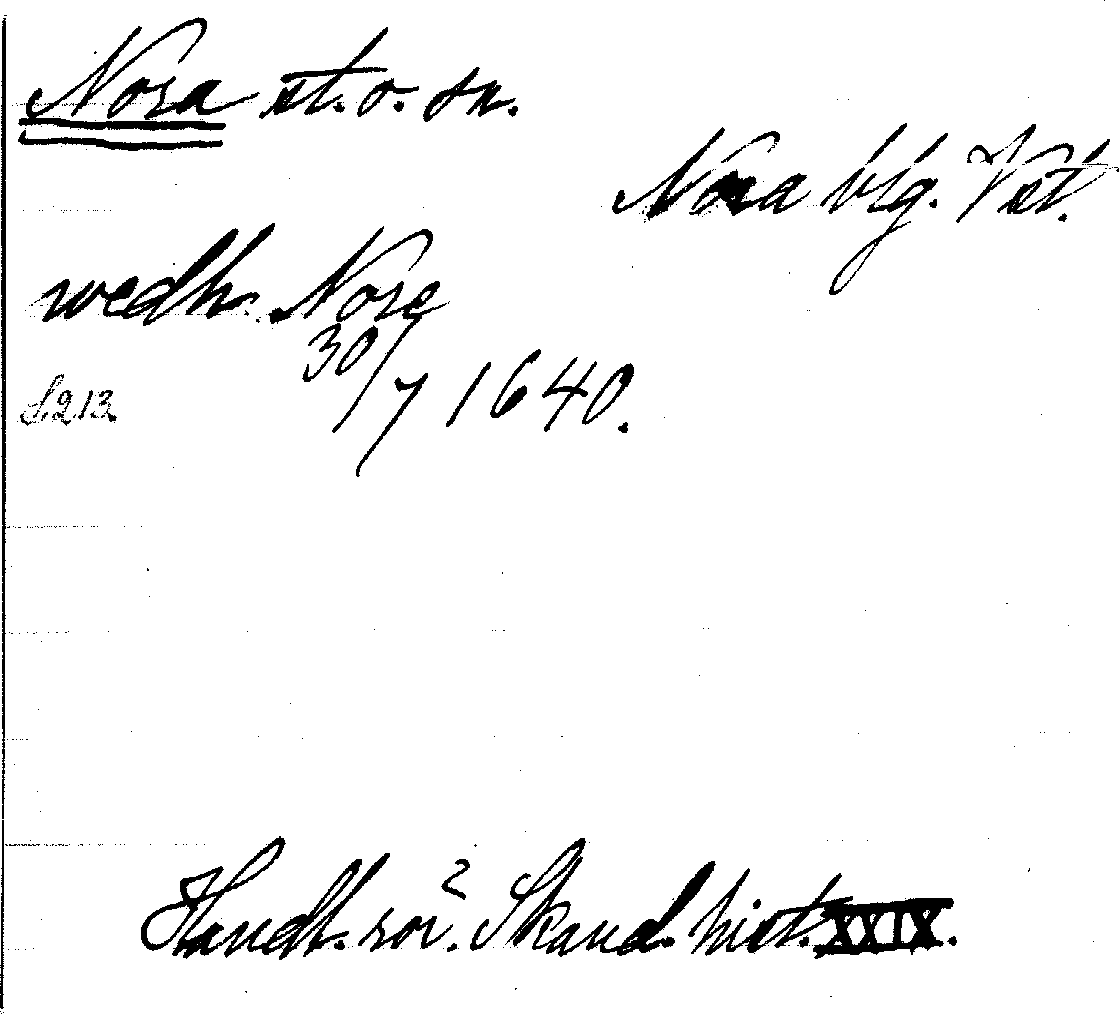 Nora st. o. sn.
Nora blg. Vst.
wedh. Nore
30/7 1640.
S. 213.
Handl. rör. Skand. hist. XXIX.